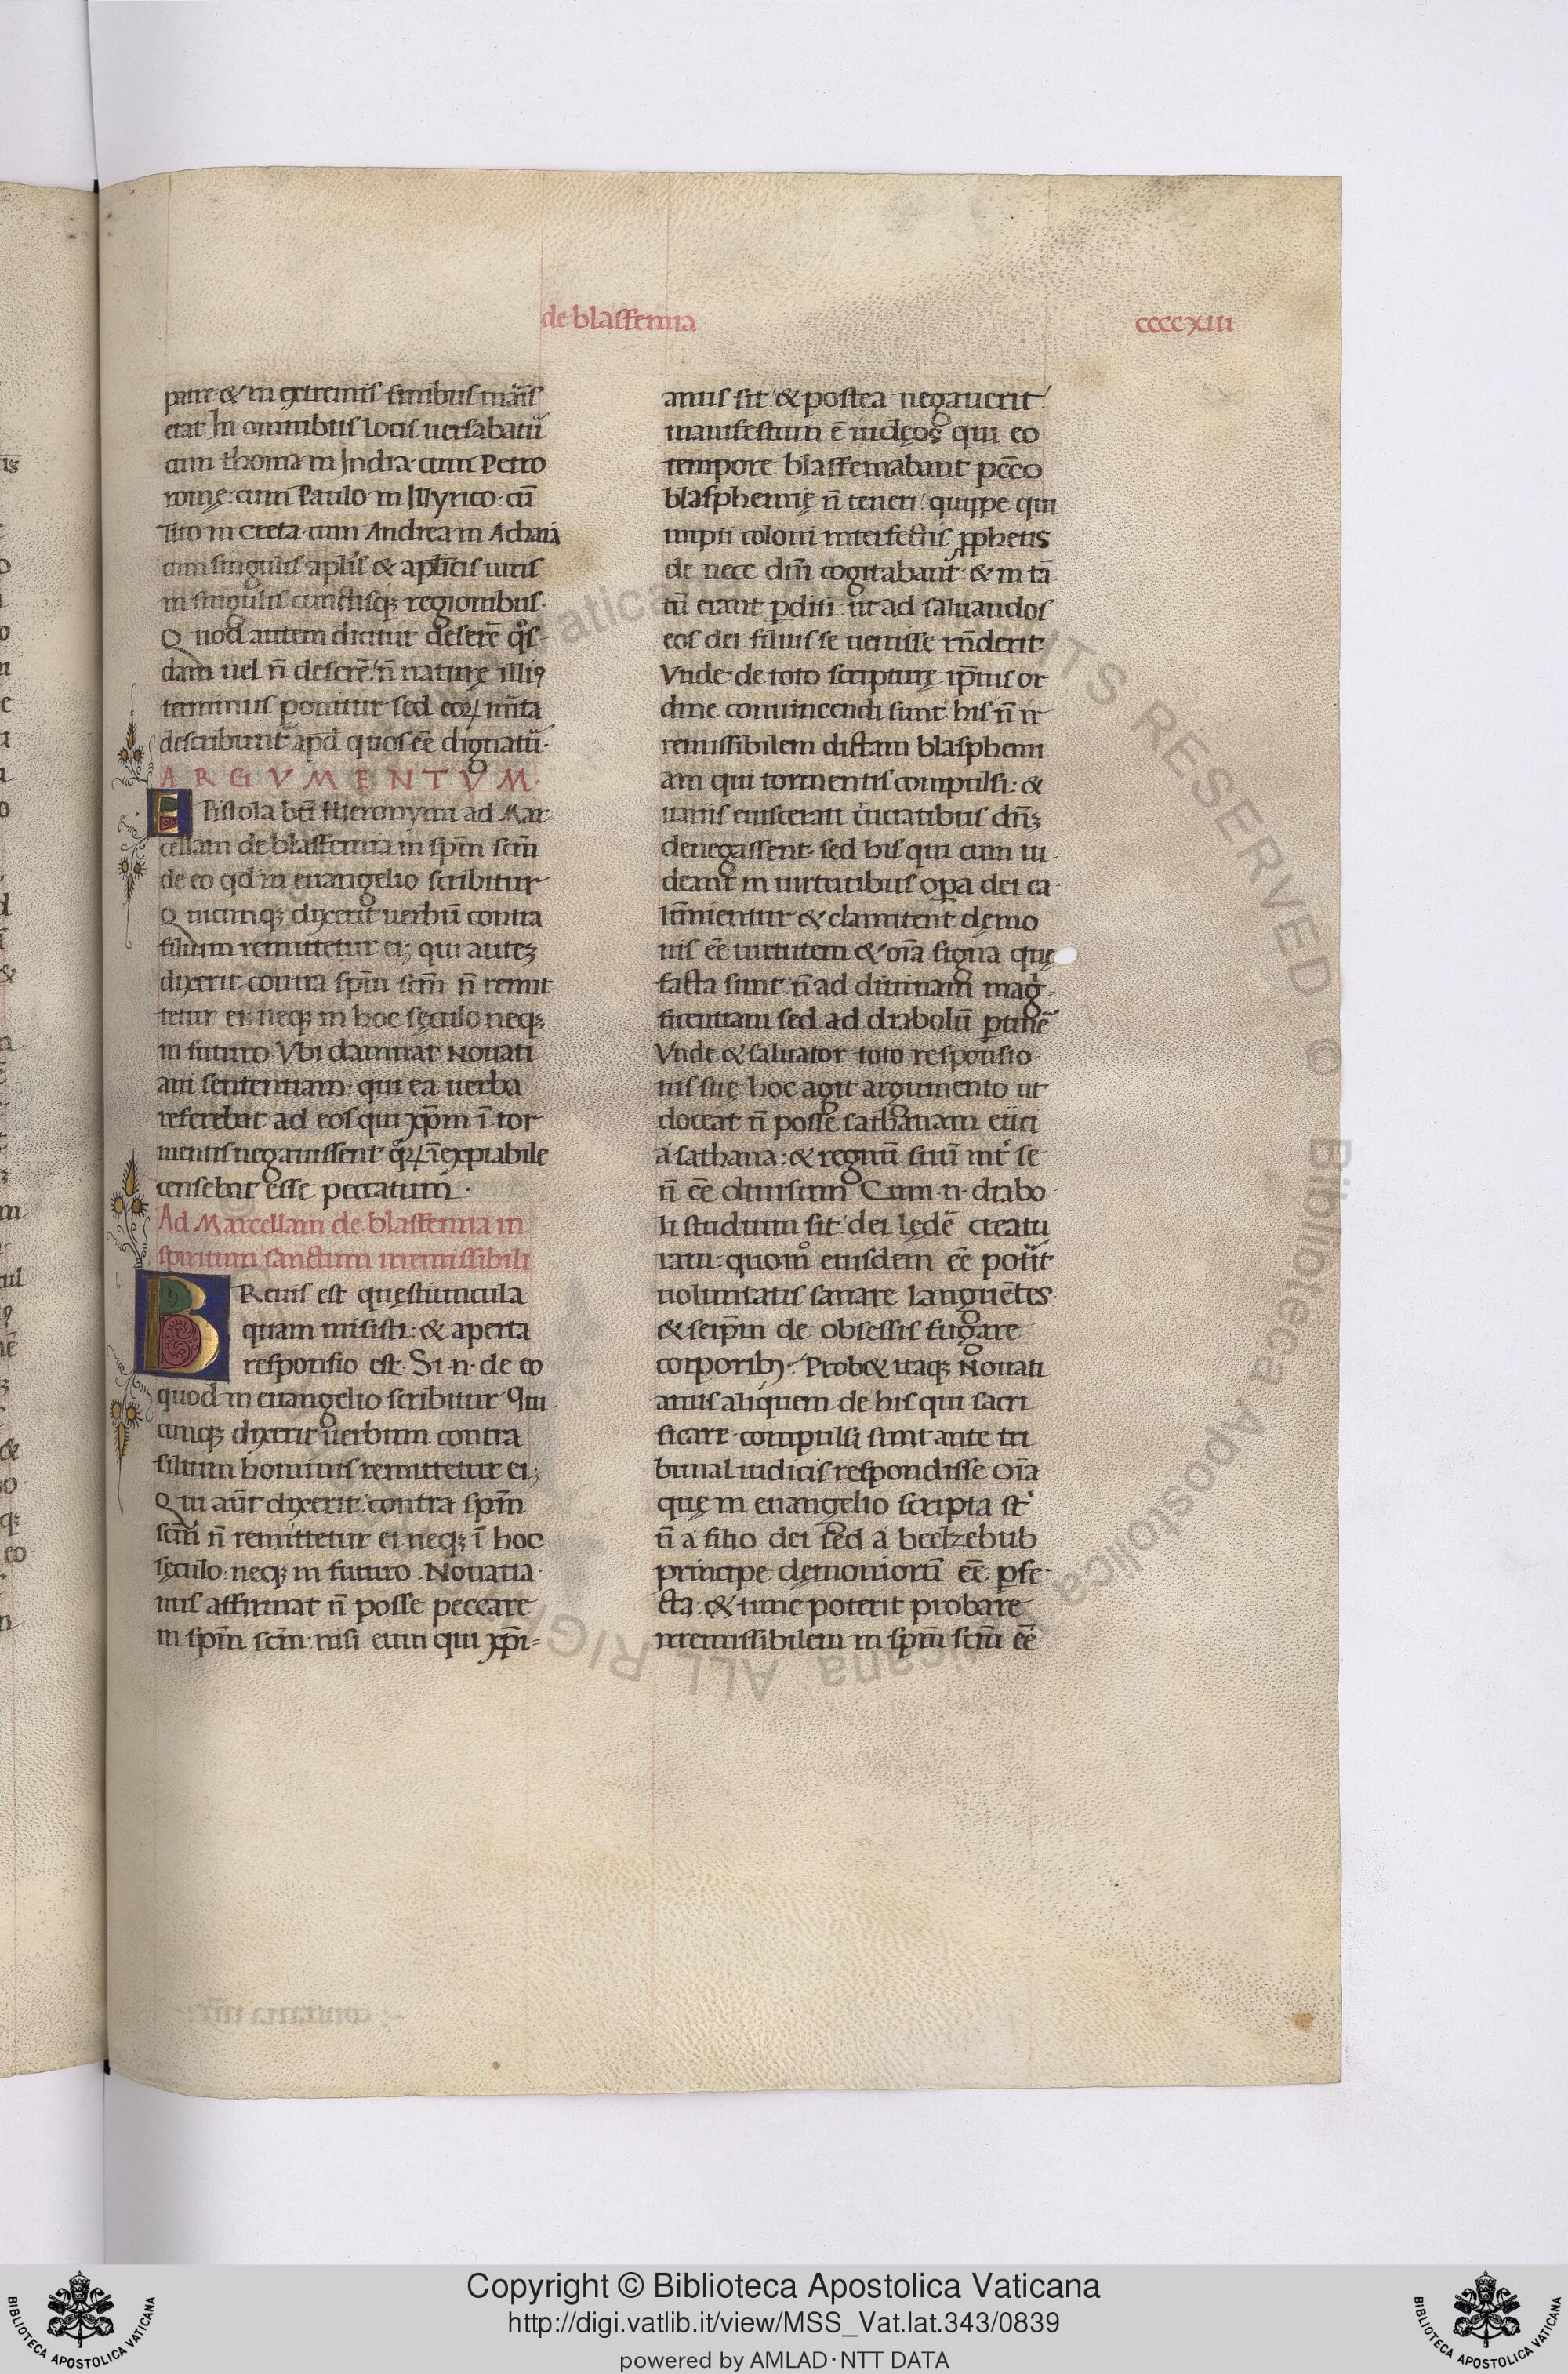 de blasfemia
ccccxiii
patre· & in extremis finibus maris
erat In omnibus locis uersabatũ
cum thoma in India· cum Petro
romę: cum Paulo in Illyrico· cũ
Tito in Creta· cum Andrea in Achaia
cum singulis apl̃is & apl̃icis uiris
in singulis cunctisq; regionibus·
Quod autem dicitur deserẽ qͦs-
dam uel ñ deserẽ: ñ naturę illiꝯ
terminus ponitur sed eoꝝ mĩta
describunt̃ apd̃ quos eẽ dignatũ·
ARGVMENTVM·
EPistola bt̃i Hieronymi ad Mar-
cellam de blasfemia in sp̃m sc̃m
de eo qd̃ in euangelio scribitur
Quicunq; dixerit uerbũ contra
filium remittetur ei; qui autez
dixerit contra sp̃m sc̃m ñ remit-
tetur ei: neq; in hoc sęculo neq;
in futuro· Vbi damnat Nouati
ani sententiam· qui ea uerba
referebat ad eos qui xp̃m ĩ tor
mentis negauissent qͦꝝ ĩexpiabile
censebat esse peccatum·
Ad Marcellam de blasfemia in
spiritum sanctum irremissibili
BReuis est quęstiuncula
quam misisti: & aperta
responsio est· Si·n·de eo
quod in euangelio scribitur Qui-
cunq; dixerit uerbum contra
filium hominis remittetur ei;
Qui aũt dixerit contra sp̃m
sc̃m ñ remittetur ei neq; ĩ hoc
sęculo: neq; in futuro· Nouatia-
nus affirmat ñ posse peccare
in sp̃m sc̃m: nisi eum qui xp̃i=
anus sit & postea negauerit:
manifestum ẽ iudęos qui eo
tempore blasfemabant pc̃co
blasphemię ñ teneri: quippe qui
impii coloni interfectis ꝓphetis
de nece dñi cogitabant: & in tã
tũ erant ꝑditi ut ad saluandos
eos dei filius se uenisse rñderit:
Vnde· de toto scripturę ip̃ius or
dine conuincendi sunt: his ñ ir
remissibilem dictam blasphemi
am qui tormentis compulsi: &
uariis euiscerati cruciatibus dñ;
denegassent· sed his qui cum ui-
deant in uirtutibus oꝑa dei ca-
lũnientur & clamitent dęmo
nis eẽ uirtutem & oĩa signa quę
facta sunt: ñ ad diuinam magͥ-
ficentiam sed ad diabolũ ꝑtinẽ
Vnde & saluator toto responsio-
nis suę hoc agit argumento ut
doceat ñ posse sathanam eiici
a sathana: & regnũ suũ int̃ se
ñ eẽ diuisum Cum·n·diabo-
li studium sit dei lędẽ creatu
ram: quomͦ eiusdem eẽ potũit
uoluntatis sanare languẽtes
& seip̃m de obsessis fugare
corporibꝫ· Prob& itaq; Nouati
anus aliquem de his qui sacri
ficare· compulsi sunt ante tri
bunal iudicis respondisse oĩa
quę in euangelio scripta st̃
ñ a filio dei sed a beelzebub
principe dęmoniorũ eẽ ꝑfe-
cta: & tunc poterit probare
irremissibilem in sp̃m sc̃m eẽ
Copyright © Biblioteca Apostolica Vaticana
http://digi.vatlib.it/view/MSS_Vat.lat.343/0839
powered by AMLAD·NTT DATA
BIBLIOTECA APOSTOLICA VATICANA
BIBLIOTECA APOSTOLICA VATICANA